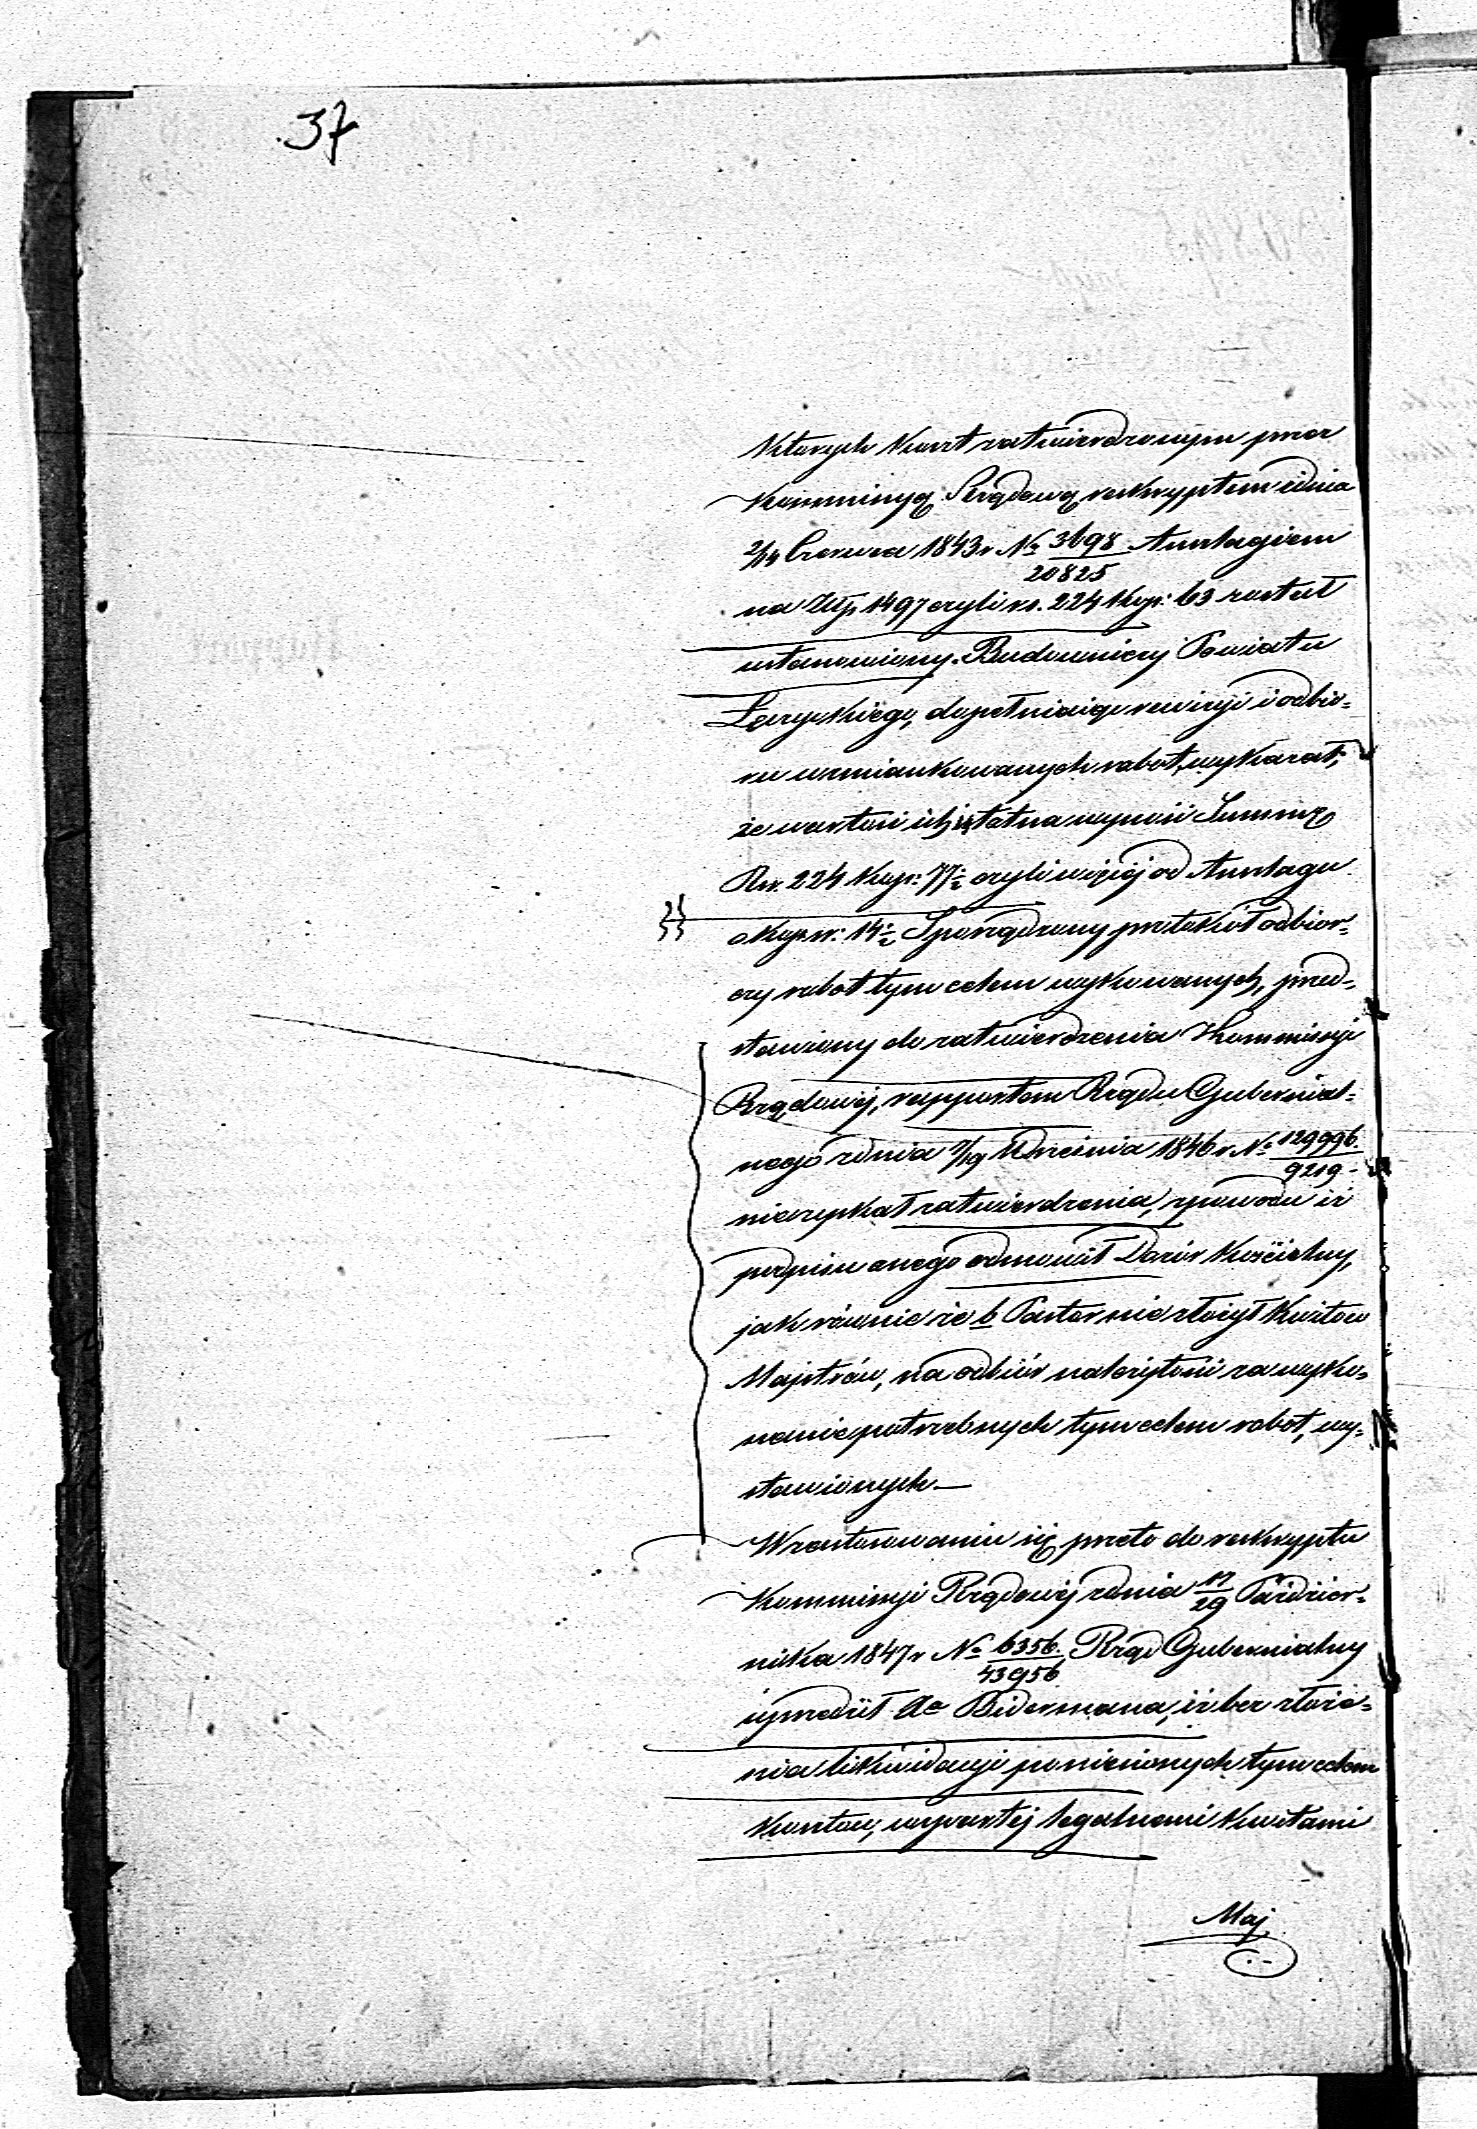 37
których Koszt zatwierdzonym przez
Kommissyą Rządową reskryptem zdnia
2/14 Czerwca 1843 r № 3698/20825 Anszlagiem
na Złp. 1497 czyli rs. 224 kop: 63 został
ustanowiony. Budowniczy Powiatu
Łęczyckiego, dopełniaiąc rewizyi i odbio-
ru wzmiankowanych robot, wykazał,
że wartość ich istotna wynosi Summę
Rs. 224 kop: 77½ czyli więcéj od Anszlagu
o kop. sr: 14½ Sporządzony protokół odbior-
czy robot tym celem wykonanych, przed-
stawiony do zatwierdzenia Kommissyi
Rządowéj, rapportem Rządu Gubernial-
nego zdnia 7/19 Września 1846 r № 129996/9219
niezyskał zatwierdzenia, zpowodu iż
podpisu onego odmówił Dozór Kościelny,
jak równie że b Pastor nie złożył Kwitów
Majstrów, na odbiór należytości za wyko-
nanie potrzebnych tym celem robot, wy-
stawionych. —
W zastosowaniu się przeto do reskryptu
Kommissyi Rządowéj zdnia 17/29 Paździer-
nika 1847 r № 6356/43956 Rząd Gubernialny
uprzedził Biedermana, iż bez złoże-
nia likwidacyi poniesionych tym celem
kosztów, wspartéj legalnemi Kwitami
Maj